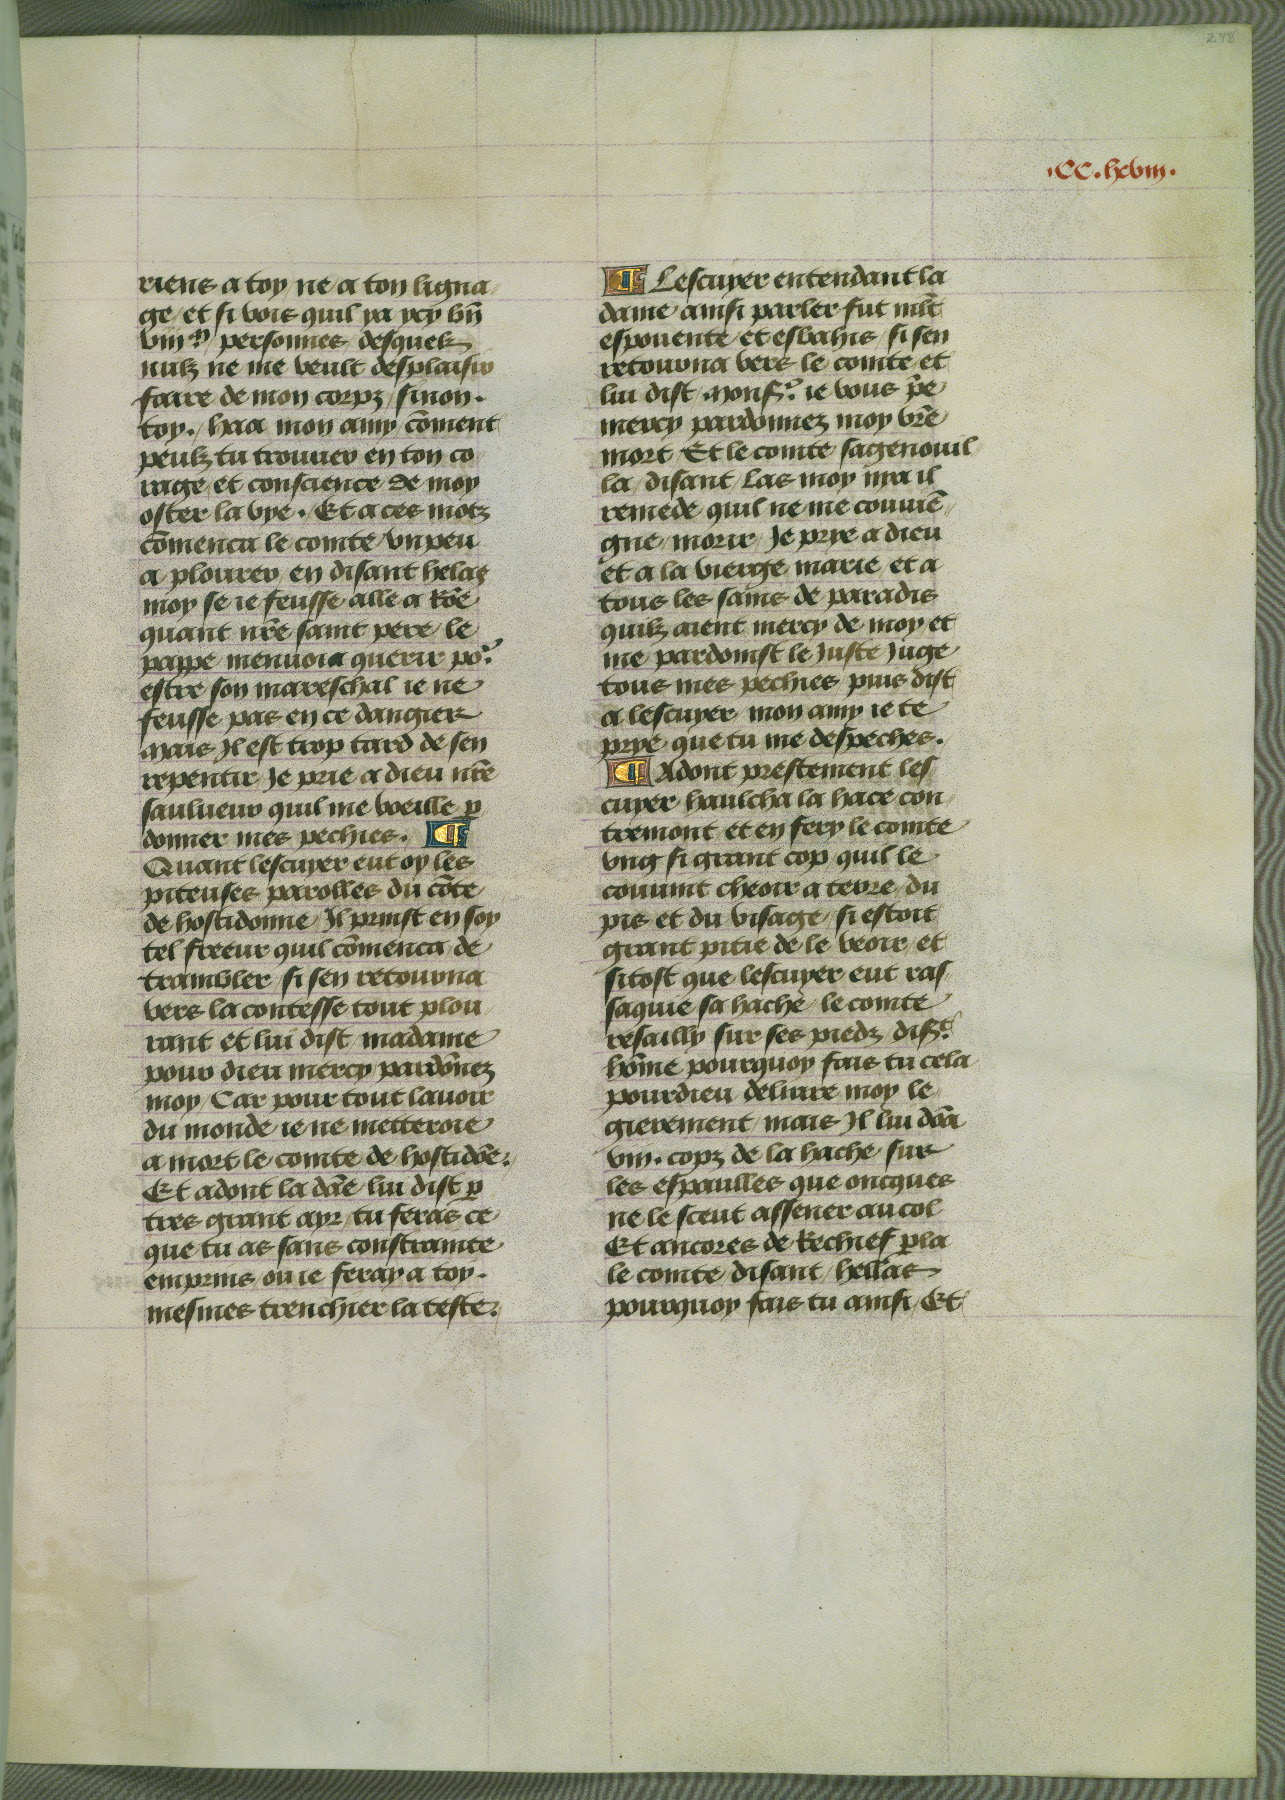 278
.CC.lxviii.
riens a toy / ne a ton ligna/
ge / et si vois quil ya ycy bn̄
viii xx personnes desquelz
nulz ne me veult desplaisir
faire de mon corpz / sinon .
toy . / haa mon amy cōment
peulz tu trouuer en ton co
rage et conscience de moy
oster la vye . Et a ces motz
cōmenca le comte / vn peu
a plourer / en disant helas
moy se ie feusse alle a Rōe
quant nr̄e saint pere le
pappe menuoia querir por
estre son mareschal ie ne
feusse pas en ce dangier
Mais Il est trop tard de sen
repentir Je prie a dieu nr̄e
saulueur quil me voeille p̲
donner mes pechies . ¶
Quant lescuyer eut oy les
piteuses parolles du cōte
de hostidonne / Il prinst en soy
tel freeur quil cōmenca de
trambler / si sen retourna
vers la contesse tout plou
rant et lui dist / madame
pour dieu mercy pardōnez
moy / Car pour tout lauoir
du monde ie ne metteroie
a mort le comte de hostidōe .
Et adont la dāe lui dist p̲
tres grant ayr / tu feras ce
que tu as sans constrainte
emprins ou ie feray a toy .
mesmes trenchier la teste .
¶ Lescuyer entendant la
dame ainsi parler fut mlt̄
espouente et esbahis / si sen
retourna vers le comte et
lui dist . Monsr ie vous p̄e
mercy pardonnez moy vr̄e
mort Et le comte sagenouil
la / disant / Las moy nya il
remede quil ne me couuiē/
gne / morir / Je prye a dieu
et a la vierge marie et a
tous les sains de paradis
quilz aient mercy de moy et
me pardoinst le Juste Juge
tous mes pechies puis dist
a lescuyer mon amy ie te
prye que tu me despeches .
¶ Adont prestement les/
cuyer haulcha la hace con/
tremont et en fery le comte
vng si grant cop quil le
couuint cheoir a terre / du
pis et du visage / si estoit
grant pitie de le veoir et
sitost que lescuyer eut ras/
saquie sa hache le comte
resailly sur ses piedz dist.
hōme pourquoy fais tu cela
pourdieu deliure moy le
gierement / mais Il lui dōa
viii . copz de la hache sur
les espaulles que oncques
ne le sceut assener au col
Et ancores de Rechief p̲la
le comte disant / hellas
pourquoy fais tu ainsi / Et